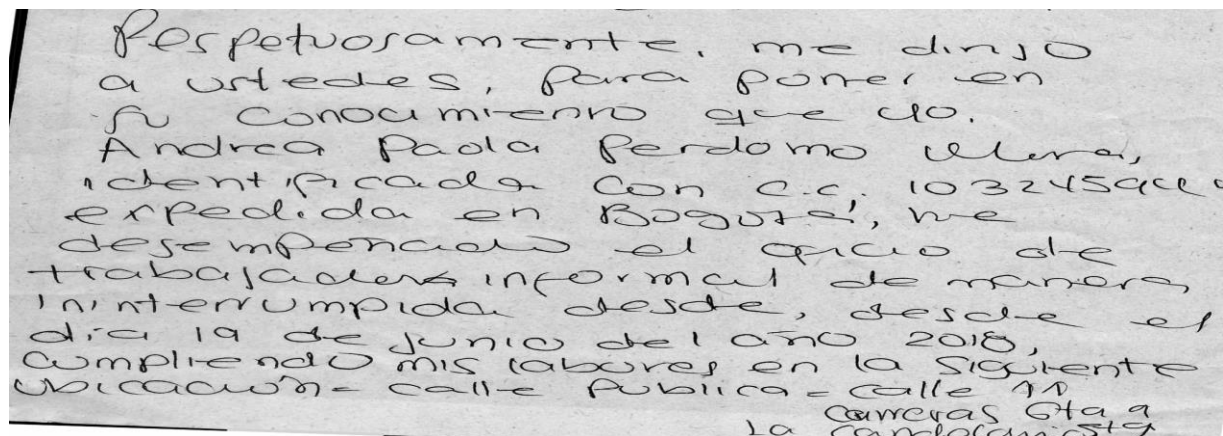 Respetuosamente, me dirijo
a ustedes, para poner en
su conocimiento que yo.
Andrea Paola Perdomo
identificada con c.c.
expedida en Bogotá, he
desempeñado el oficio de
trabajadora informal de manera
ininterrumpida desde, desde el
día 19 de junio del año 2018,
cumpliendo mis labores en la siguiente
ubicación - calle publica - calle 11
carreras 6ta a
la